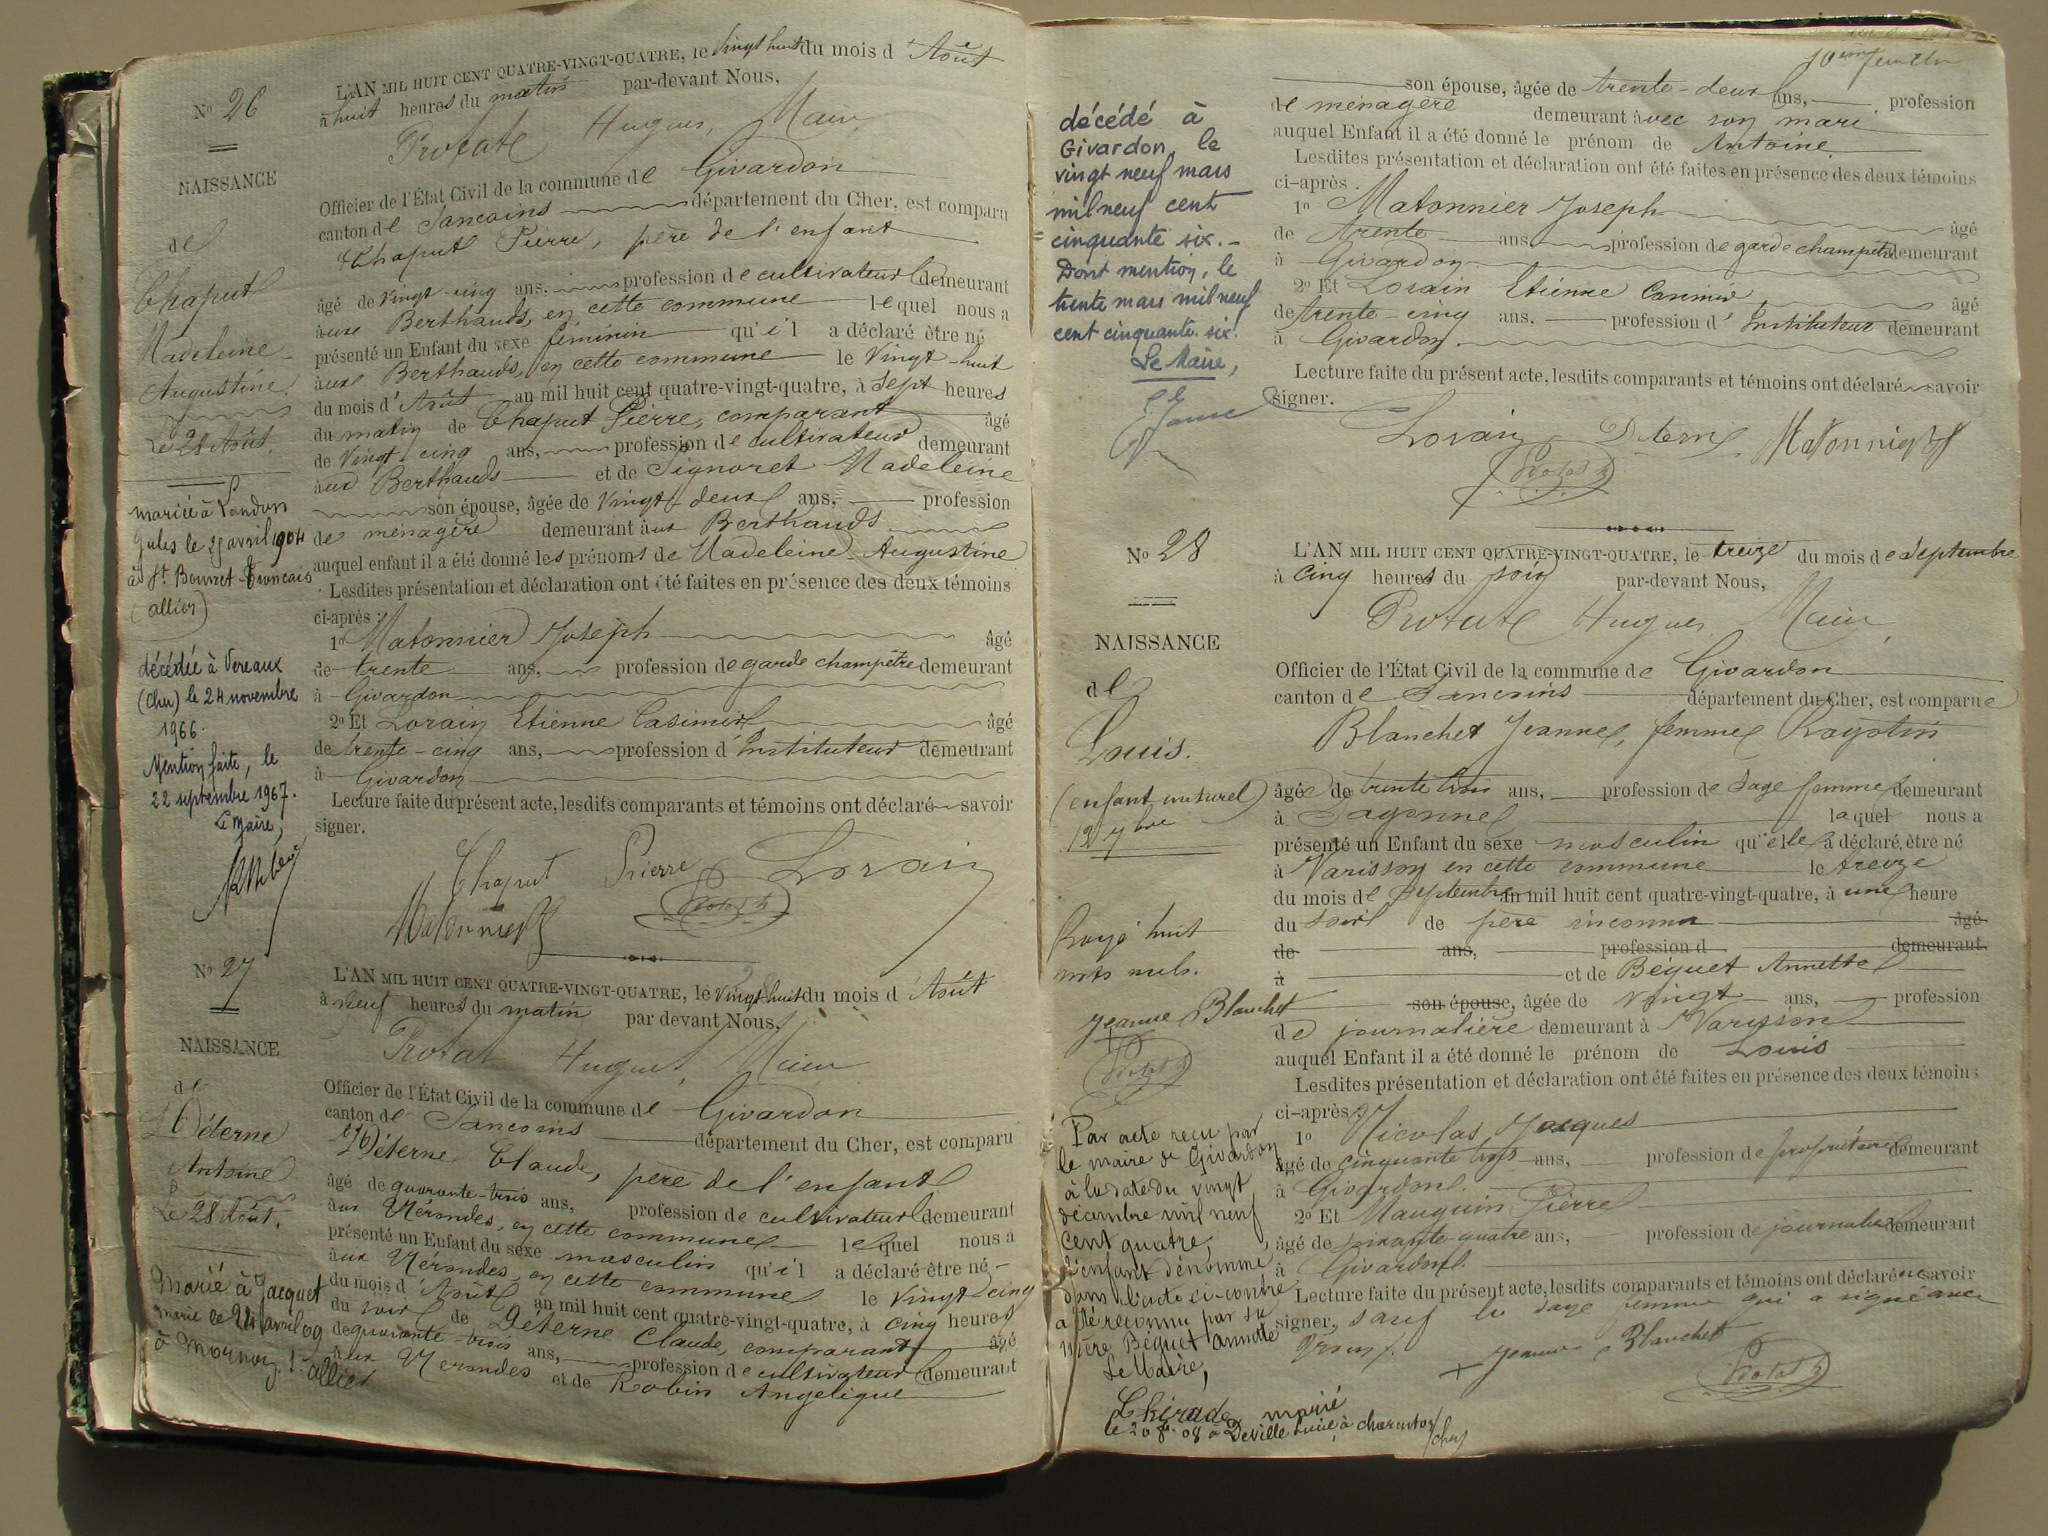 No 26
NAISSANCE
de
Chaput
Madeleine
Augustine
Le 28 Août.
mariée à Landon
Jules le avril 1904
à St. Bonnet-Troncais
(allier)
décédée à Vereaux
(Cher) le 24 novembre
1966.
Mention faite, le
22 septembre 1967.
Le Maire,
L'AN MIL HUIT CENT QUATRE-VINGT-QUATRE, le Vingt huit du mois d'Août
à huit heures du matin par-devant Nous,
Protat Hugues, Maire
Officier de l'État Civil de la commune de Givardon
canton de Sancoins département du Cher, est comparu
Chaput Pierre, père de l'enfant
âgé de vingt-cinq ans, profession de cultivateur demeurant
aux Berthauds, en cette commune lequel nous a
présenté un Enfant du sexe féminin qu'il a déclaré être né
aux Berthauds, en cette commune le Vingt-huit
du mois d'Août an mil huit cent quatre-vingt-quatre, à Sept heures
du matin de Chaput Pierre, comparant âgé
de Vingt cinq ans, profession de cultivateur demeurant
aux Berthauds et de Signoret Madeleine
son épouse, âgée de Vingt-deux ans, profession
de ménagère demeurant aux Berthauds
auquel enfant il a été donné les prénoms de Madeleine Augustine
Lesdites présentation et déclaration ont été faites en présence des deux témoins
ci-après :
1o Matonnier Joseph âgé
de trente ans, profession de garde champêtre demeurant
à Givardon
2o Et Lorain Etienne Casimir âgé
de trente-cinq ans, profession d'Instituteur demeurant
à Givardon
Lecture faite du présent acte, lesdits comparants et témoins ont déclaré savoir
signer.
Chaput Pierre Lorain
Matonnier Protat h
No 27
NAISSANCE
de
Déterne
Antoine
Le 28 Août.
Marié à Jacquet
marie le 24 avril 09
à Mornay allier
L'AN MIL HUIT CENT QUATRE-VINGT-QUATRE, le vingt-huit du mois d'Août
à neuf heures du matin par devant Nous,
Protat Hugues, Maire
Officier de l'État Civil de la commune de Givardon
canton de Sancoins département du Cher, est comparu
Déterne Claude, père de l'enfant
âgé de quarante-trois ans, profession de cultivateur demeurant
aux Nérondes, en cette commune lequel nous a
présenté un Enfant du sexe masculin qu'il a déclaré être né
aux Nérondes, en cette commune le Vingt cinq
du mois d'Août an mil huit cent quatre-vingt-quatre, à cinq heures
du soir de Déterne Claude, comparant âgé
de quarante-trois ans, profession de cultivateur demeurant
aux Nérondes et de Robin Angélique
10eme feuillet
décédé à
Givardon le
vingt neuf mars
mil neuf cent
cinquante six.-
Dont mention, le
trente mars mil neuf
cent cinquante-six.
Le Maire,
son épouse, âgée de trente-deux ans, profession
de ménagère demeurant avec son mari
auquel Enfant il a été donné le prénom de Antoine.
Lesdites présentation et déclaration ont été faites en présence des deux témoins
ci-après.
1o Matonnier Joseph âgé
de trente ans, profession de garde champêtre demeurant
à Givardon
2o Et Lorain Etienne Casimir âgé
de trente-cinq ans, profession d'Instituteur demeurant
à Givardon.
Lecture faite du présent acte, lesdits comparants et témoins ont déclaré savoir
signer.
Lorain Déterne Matonnier
Protat h
No 28
NAISSANCE
de
Louis.
(enfant naturel)
Rayé huit
mots nuls.
Jeanne Blanchet
Protat h
Par acte reçu par
le maire de Givardon
à la date du vingt
décembre mil neuf
cent quatre,
l'enfant dénommé
dans l'acte ci-contre
a été reconnu par sa
mère Béquet Annette
Le Maire,
marié
à Deville Lucie à Charenton/cher
L'AN MIL HUIT CENT QUATRE-VINGT-QUATRE, le treize du mois de Septembre
à cinq heures du soir par-devant Nous,
Protat Hugues, Maire,
Officier de l'État Civil de la commune de Givardon
canton de Sancoins département du Cher, est comparue
Blanchet Jeanne, femme Ragotin
âgée de trente trois ans, profession de sage femme demeurant
à Sagonne laquel nous a
présenté un Enfant du sexe masculin qu'elle a déclaré, être né
à Varisson en cette commune le treize
du mois de Septembre an mil huit cent quatre-vingt-quatre, à une heure
du soir de père inconnu âgé
de ans, profession d demeurant
à et de Béquet Annette
son épouse, âgée de vingt ans, profession
de journalière demeurant à Varisson
auquel Enfant il a été donné le prénom de Louis
Lesdites présentation et déclaration ont été faites en présence des deux témoins
ci-après :
1o Nicolas Jacques
âgé de cinquante trois ans, profession de propriétaire demeurant
à Givardon.
2o Et Mauguin Pierre
âgé de soixante-quatre ans, profession de journalier demeurant
à Givardon.
Lecture faite du présent acte, lesdits comparants et témoins ont déclaré ne savoir
signer, sauf la sage femme qui a signé avec
nous.
Jeanne Blanchet
Protat h